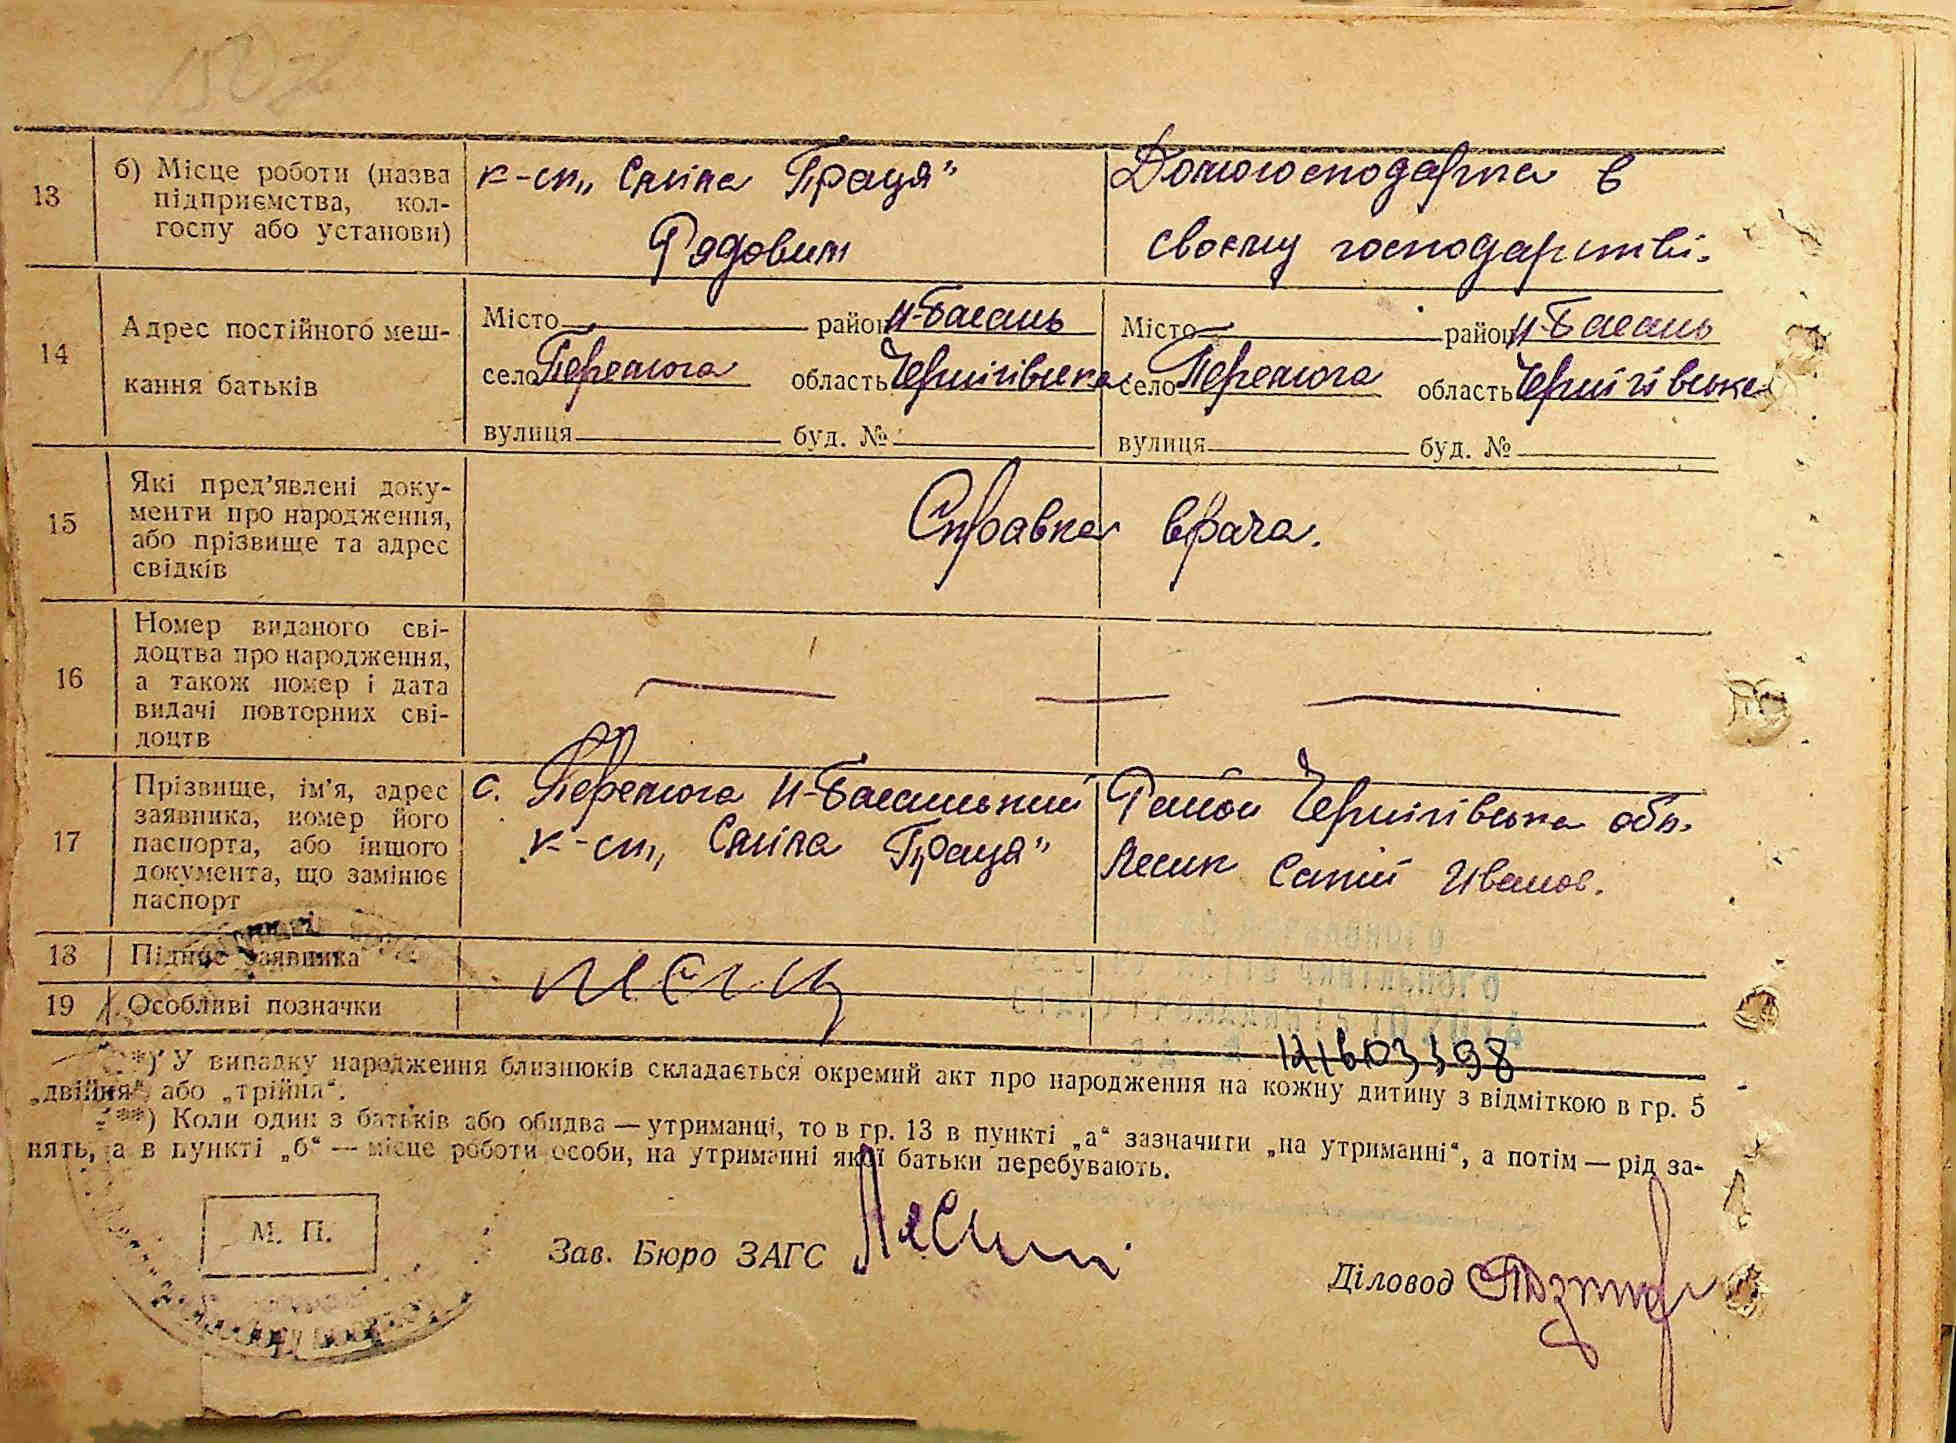 13
б) Місце роботи (назва
підприємства, кол-
госпу або установи)
к-сп„ Спілка Праця"
Рядовим
Домогосподарка в
своєму господарстві.
14
Адрес постійного меш-
кання батьків
Місто район Н-Басань
село Перемога область Чернігівська
вулиця буд. №
Місто район Н-Басань
село Перемога область Чернігівська
вулиця буд. №
15
Які пред'явлені доку-
менти про народження,
або прізвище та адрес
свідків
Справка врача.
16
Номер виданого сві-
доцтва про народження,
а також номер і дата
видачі повторних сві-
доцтв
17
Прізвище, ім'я, адрес
заявника, номер його
паспорта, або іншого
документа, що замінює
паспорт
с. Перемога Н-Басанський Район Чернігівська обл.
к-сп„ Спілка Праця" Лесик Иванов.
18
Підпис заявника
19
Особливі позначки
*) У випадку народження близнюків складається окремий акт про народження на кожну дитину з відміткою в гр. 5
„двійня" або „трійня".
**) Коли один з батьків або обидва — утриманці, то в гр. 13 в пункті „а" зазначити „на утриманні", а потім — рід за-
нять, а в пункті „б" — місце роботи особи, на утриманні якої батьки перебувають.
М. П.
Зав. Бюро ЗАГС
Діловод